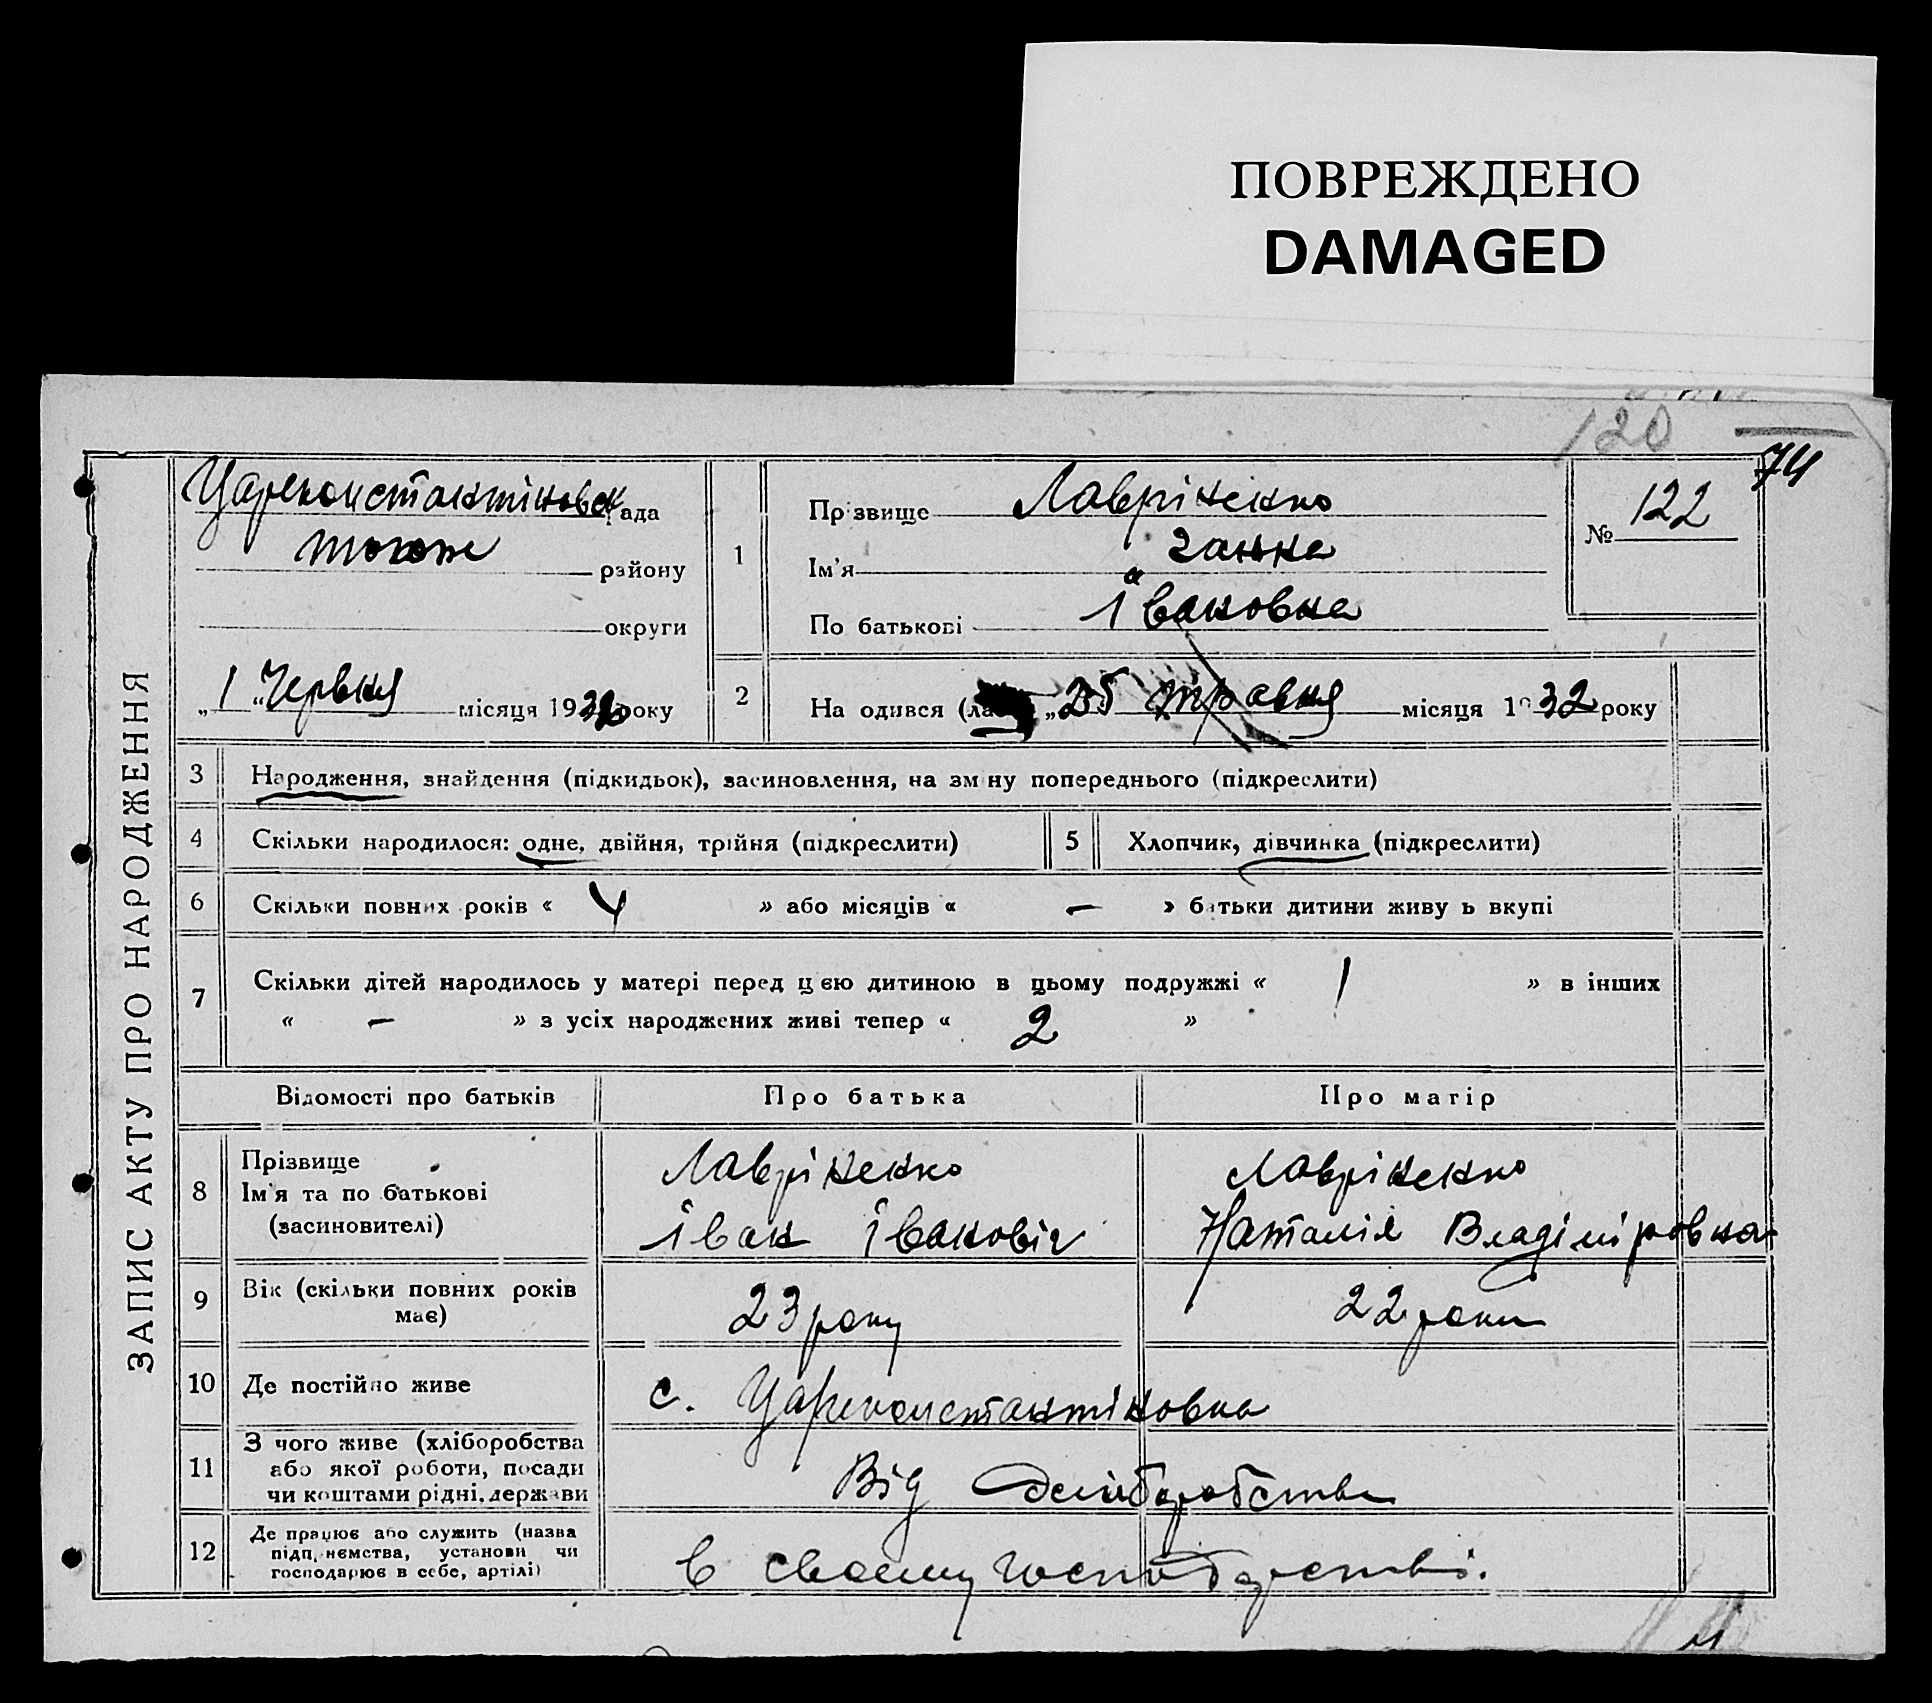 ПОВРЕЖДЕНО
DAMAGED
120
74
ЗАПИС АКТУ ПРО НАРОДЖЕННЯ
Цареконстантіновск рада
тогож району
округи
„ 1 “ Червня місяця 1932 року
1
Прізвище Лаврінєнко
Ім'я Ганна
По батькові Івановна
№ 122
2
На одився (ла „ 25 травня місяця 1932 року
3 Народження, знайдення (підкидьок), засиновлення, на зміну попереднього (підкреслити)
4 Скільки народилося: одне, двійня, трійня (підкреслити)
5 Хлопчик, дівчинка (підкреслити)
6 Скільки повних років « 4 » або місяців « — » батьки дитини живу ь вкупі
7 Скільки дітей народилось у матері перед цією дитиною в цьому подружжі « 1 » в інших
« — » з усіх народжених живі тепер « 2 »
Відомості про батьків Про батька Про матір
8 Прізвище
Ім'я та по батькові
(засиновителі)
Лаврінєнко
Іван Івановіч
Лаврінєнко
Наталія Владіміровна
9 Вік (скільки повних років
має)
23 року
22 роки
10 Де постійно живе
с. Цареконстантіновка
11 З чого живе (хліборобства
або якої роботи, посади
чи коштами рідні, держави
Від хліборобства
12 Де працює або служить (назва
підприємства, установи чи
господарює в себе, артілі)
в своему господарстві.